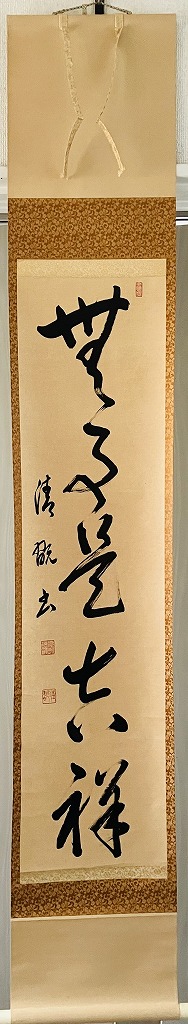 無事是吉祥
清観書